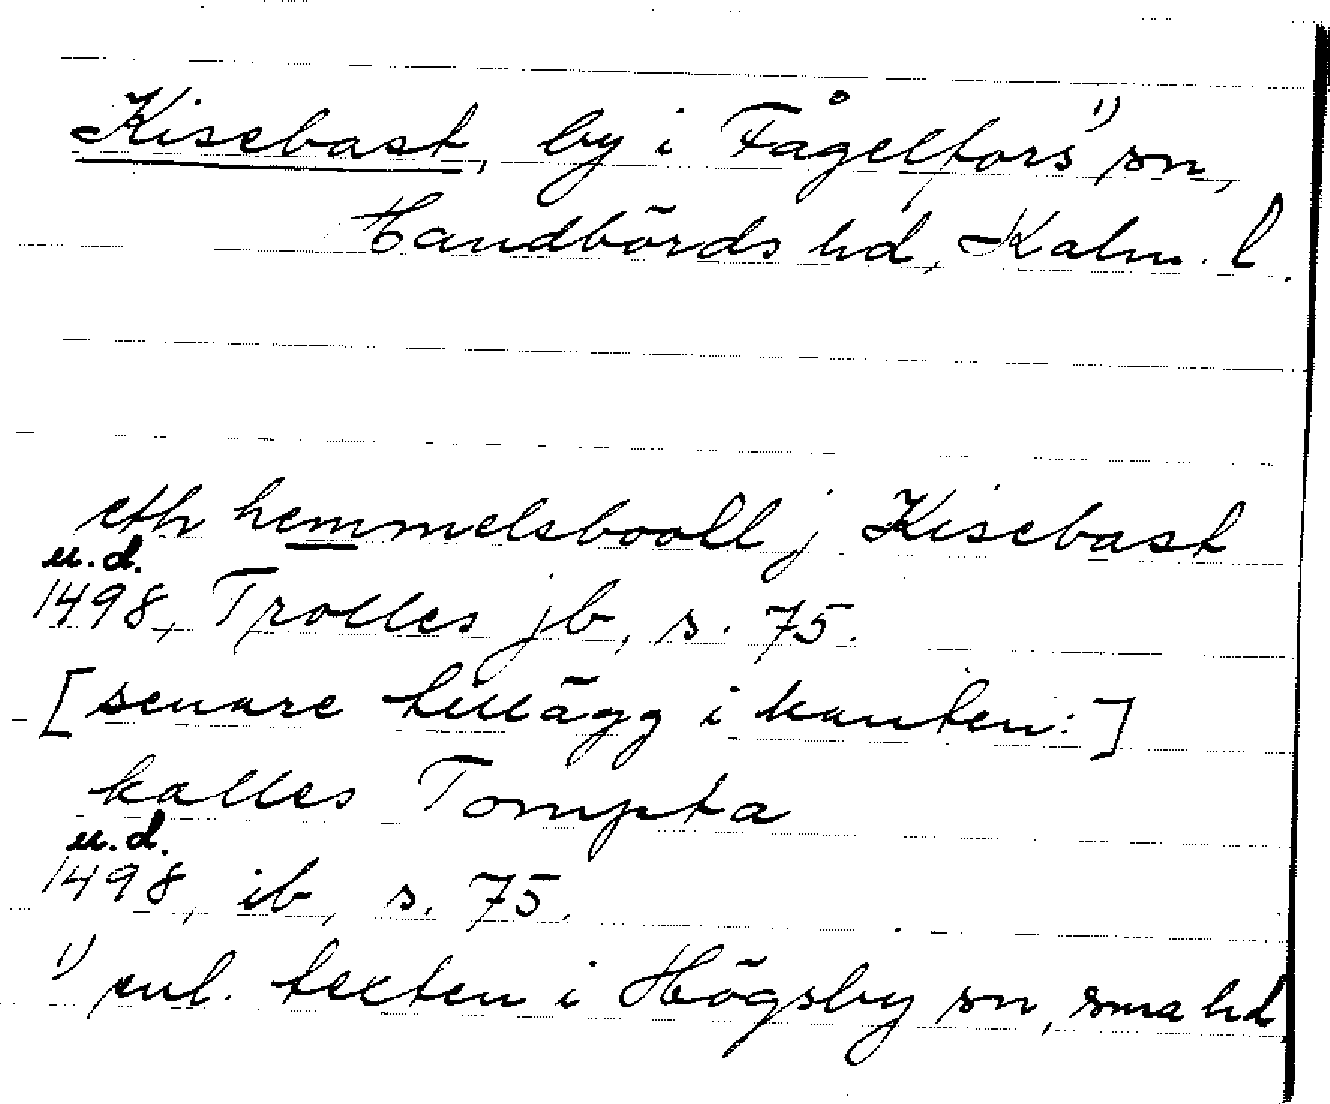 Kisebast, by i Fågelfors ¹⁾ sn,
Handbörds hd, Kalm. l.
eth hemmelsbooll j Kisebast
u.d.
1498, Trolles jb, s. 75.
[senare tillägg i kanten:]
kalles Tompta
u.d.
1498, ib, s. 75.
¹⁾ enl. texten i Högsby sn, sma hd